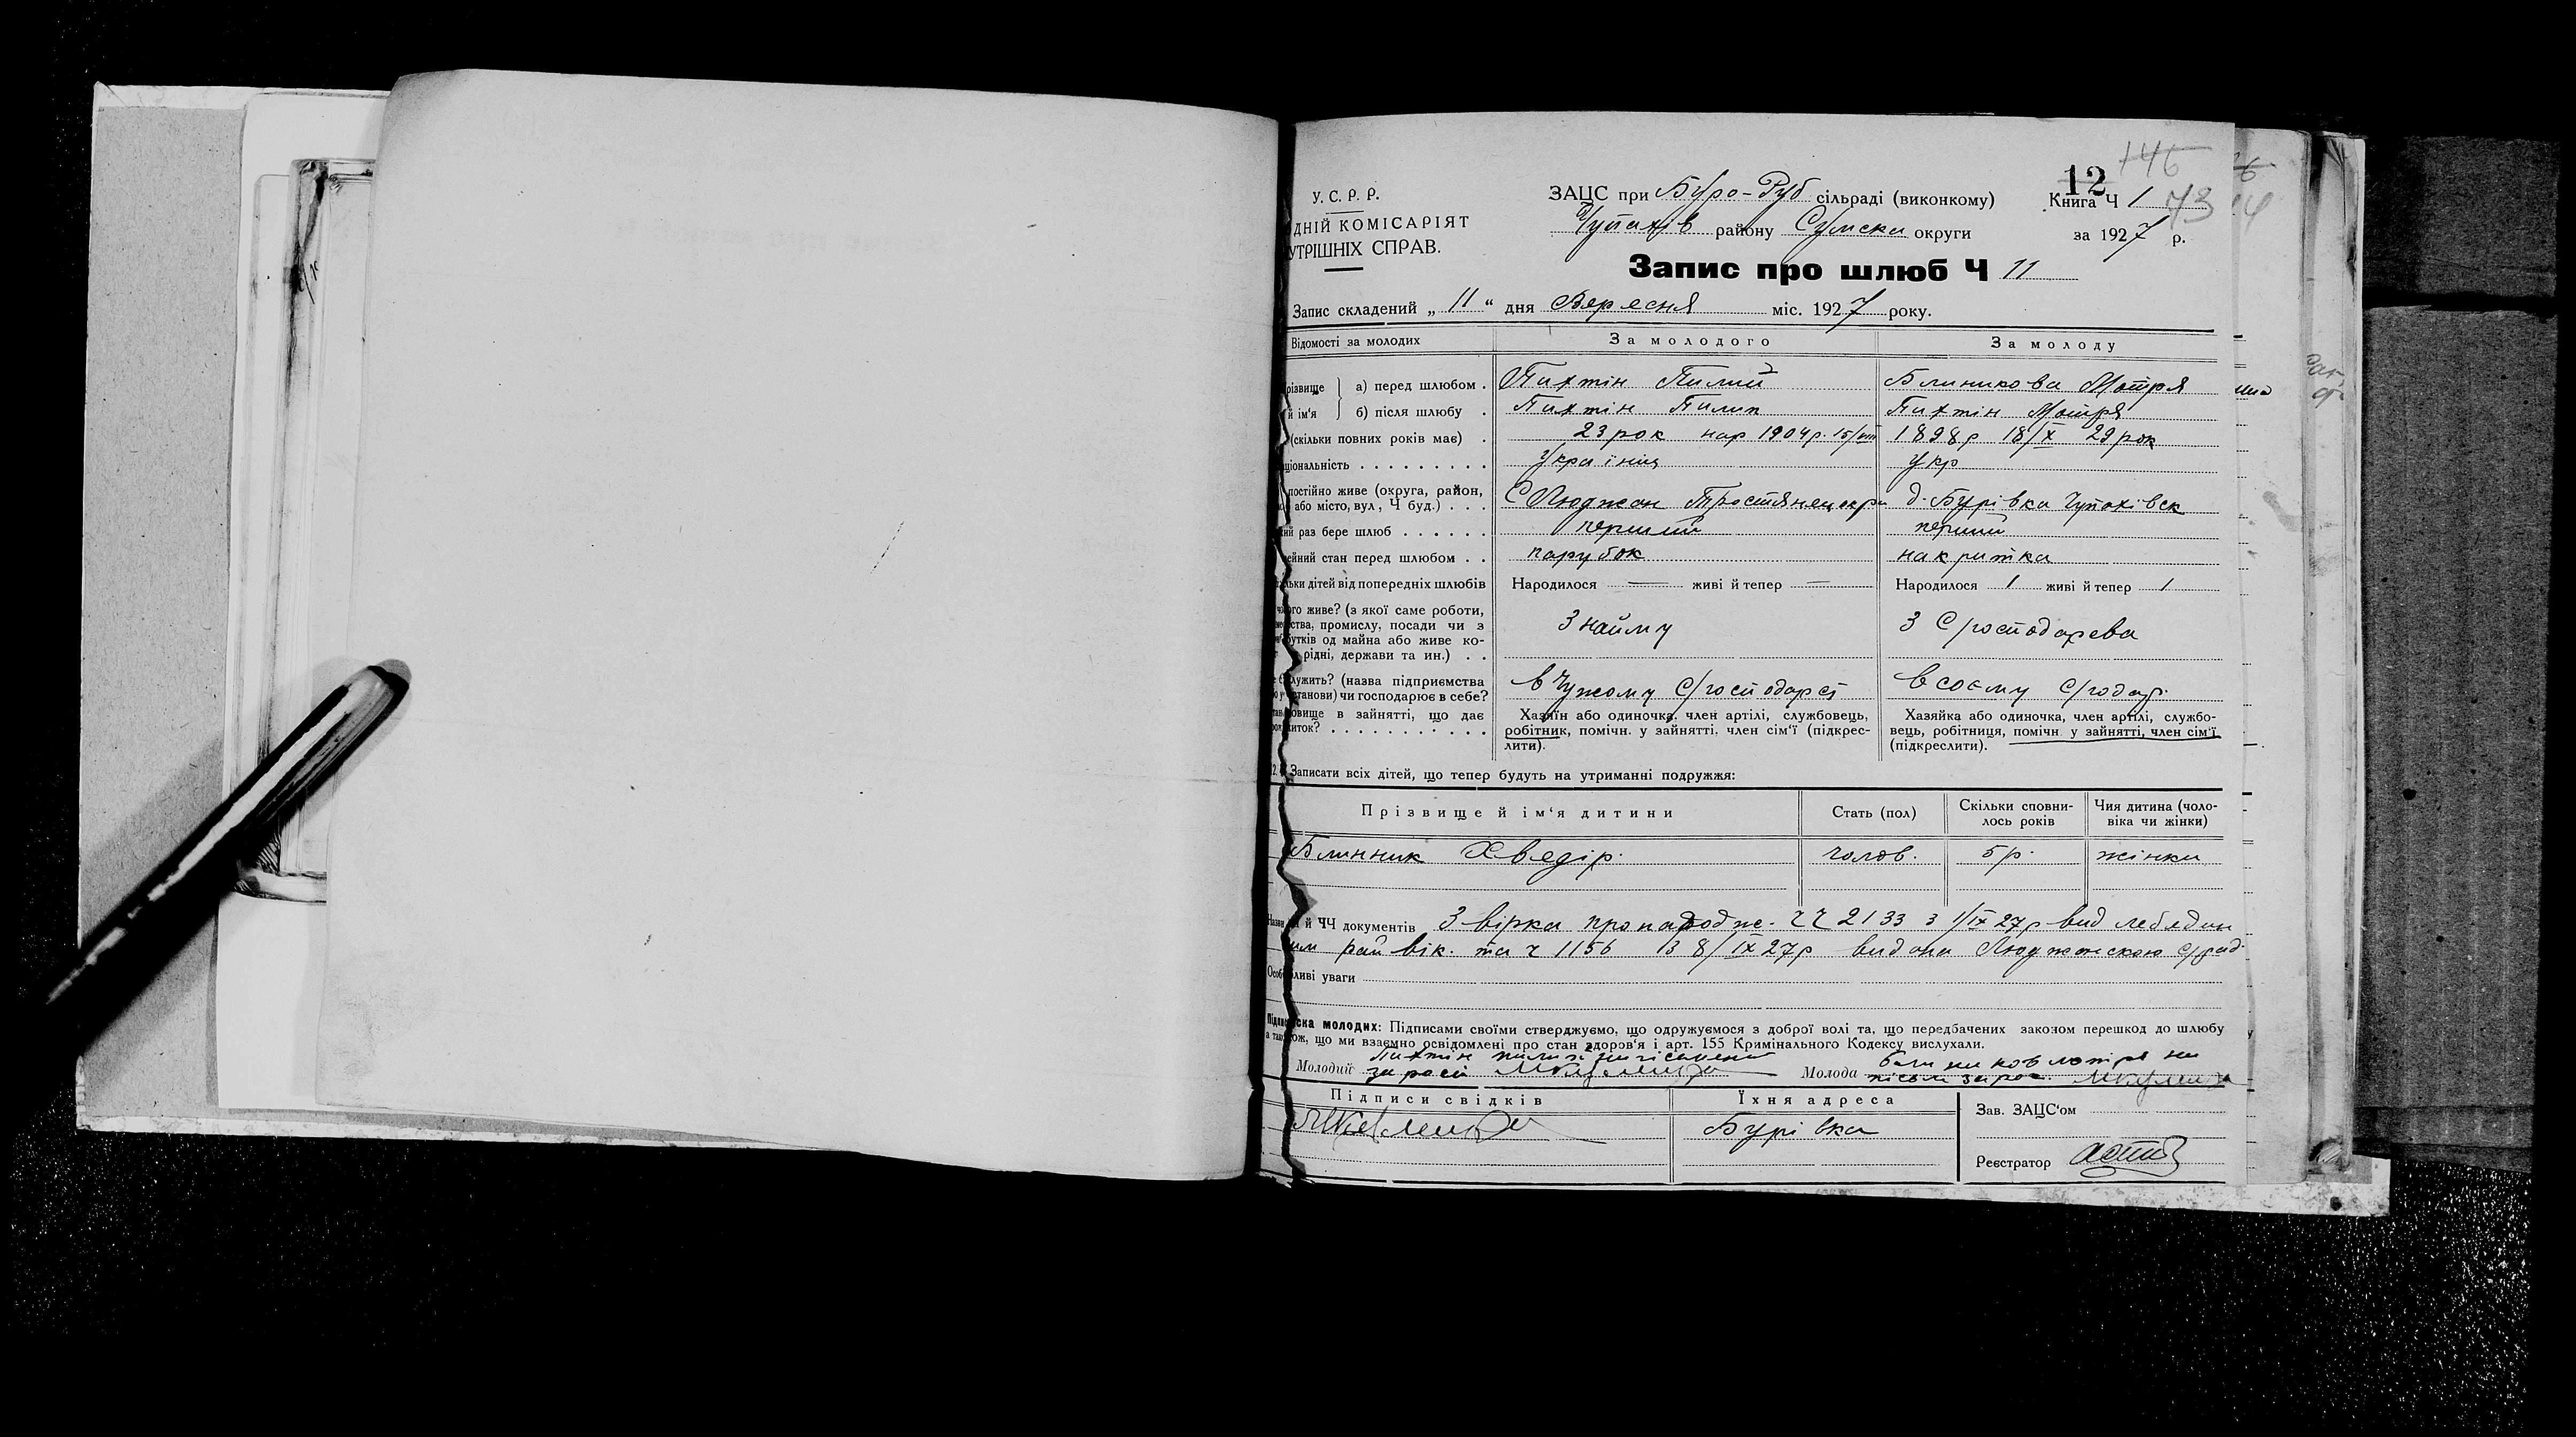 146
12
У. С. Р. Р.
ЗАЦС при Буро-Руб сільраді (виконкому)
Книга Ч 1
73
14
ДНІЙ КОМІСАРІЯТ
Чупахів району Сумски округи
за 1927 р.
УТРІШНІХ СПРАВ.
Запис про шлюб Ч 11
Запис складений „ 11 “ дня Вересня міс. 1927 року.
Відомості за молодих
За молодого
За молоду
різвище а) перед шлюбом .
Пихтін Пилип
Блиникова Мотря
й ім'я б) після шлюбу .
Пихтін Пилип
Пихтін Мотря
(скільки повних років має) .
23 рок нар 1904 р. 15/VIII
1898 р 18/X 29 рок
ціональність . . . . . . . . .
Україніц
Укр
постійно живе (округа, район,
або місто, вул , Ч буд.) . . .
С Люджан Тростянец окри
д. Бурівка Чупахівск
ий раз бере шлюб . . . . . .
перший
перший
ейний стан перед шлюбом . .
парубок
накритка
льки дітей від попередніх шлюбів
Народилося — живі й тепер —
Народилося 1 живі й тепер 1
ого живе? (з якої саме роботи,
ства, промислу, посади чи з
бутків од майна або живе ко-
рідні, держави та ин.) . .
З найму
З С/господарсва
лужить? (назва підприємства
танови) чи господарює в себе?
в Чужому С/господарсі
в соєму С/годар.
овище в зайнятті, що дає
иток? . . . . . . . . . . .
Хазяїн або одиночка, член артілі, службовець,
робітник, помічн. у зайнятті, член сім'ї (підкрес-
лити).
Хазяйка або одиночка, член артілі, службо-
вець, робітниця, помічн. у зайнятті, член сім'ї
(підкреслити).
Записати всіх дітей, що тепер будуть на утриманні подружжя:
Прізвище й ім'я дитини
Стать (пол)
Скільки сповни-
лось років
Чия дитина (чоло-
віка чи жінки)
Блинник Хведір.
чолов.
5 р.
жінки
й ЧЧ документів З вірка про народж. ЧЧ 2133 з 1/IX 27 р вид Лебедин
им рай вік. та ч 1156 із 8/IX 27 р видана Люджанскою с/рад.
Особливі уваги
ска молодих: Підписами своїми стверджуємо, що одружуємося з доброї волі та, що передбачених законом перешкод до шлюбу
а також, що ми взаємно освідомлені про стан здоров'я і арт. 155 Кримінального Кодексу вислухали.
Молодий Пихтін пилип
Молода
Підписи свідків
Їхня адреса
Зав. ЗАЦС'ом
Бурівка
Реєстратор